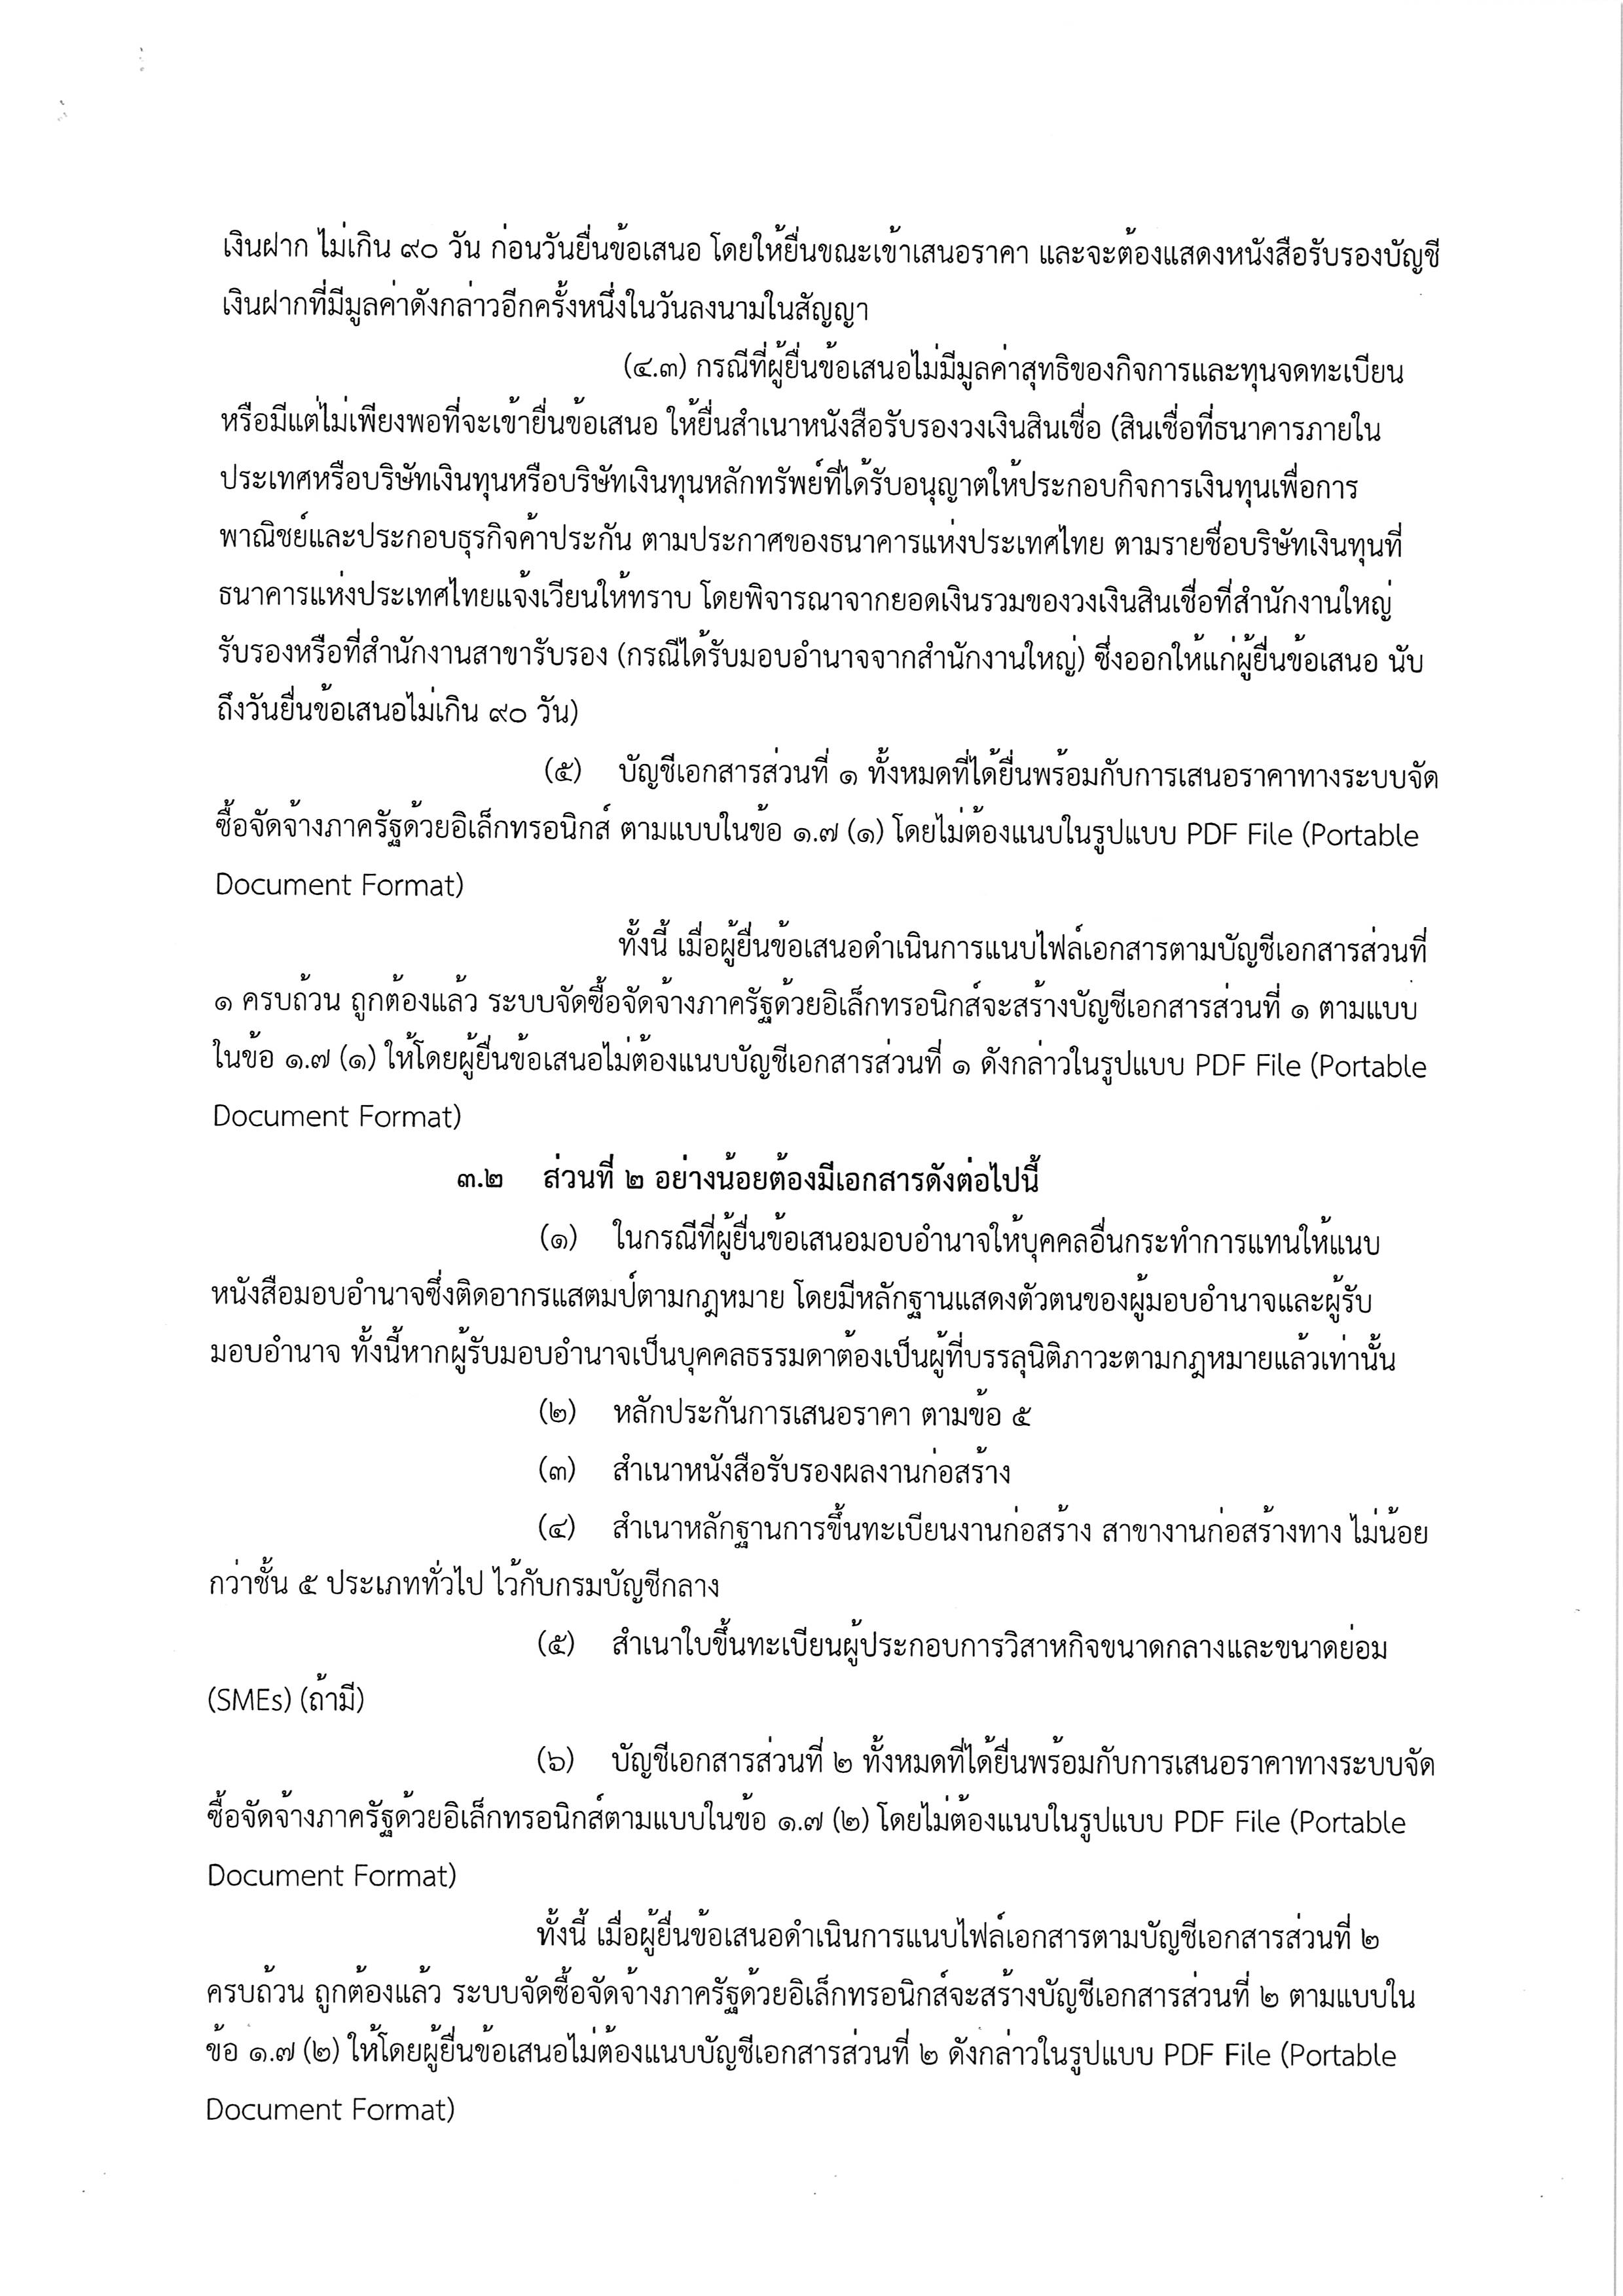 เงินฝาก ไม่เกิน ๙๐ วัน ก่อนวันยื่นข้อเสนอ โดยให้ยื่นขณะเข้าเสนอราคา และจะต้องแสดงหนังสือรับรองบัญชี
เงินฝากที่มีมูลค่าดังกล่าวอีกครั้งหนึ่งในวันลงนามในสัญญา
(๔.๓) กรณีที่ผู้ยื่นข้อเสนอไม่มีมูลค่าสุทธิของกิจการและทุนจดทะเบียน
หรือมีแต่ไม่เพียงพอที่จะเข้ายื่นข้อเสนอ ให้ยื่นสำเนาหนังสือรับรองวงเงินสินเชื่อ (สินเชื่อที่ธนาคารภายใน
ประเทศหรือบริษัทเงินทุนหรือบริษัทเงินทุนหลักทรัพย์ที่ได้รับอนุญาตให้ประกอบกิจการเงินทุนเพื่อการ
พาณิชย์และประกอบธุรกิจค้ำประกัน ตามประกาศของธนาคารแห่งประเทศไทย ตามรายชื่อบริษัทเงินทุนที่
ธนาคารแห่งประเทศไทยแจ้งเวียนให้ทราบ โดยพิจารณาจากยอดเงินรวมของวงเงินสินเชื่อที่สำนักงานใหญ่
รับรองหรือที่สำนักงานสาขารับรอง (กรณีได้รับมอบอำนาจจากสำนักงานใหญ่) ซึ่งออกให้แก่ผู้ยื่นข้อเสนอ นับ
ถึงวันยื่นข้อเสนอไม่เกิน ๙๐ วัน)
(๕) บัญชีเอกสารส่วนที่ ๑ ทั้งหมดที่ได้ยื่นพร้อมกับการเสนอราคาทางระบบจัด
ซื้อจัดจ้างภาครัฐด้วยอิเล็กทรอนิกส์ ตามแบบในข้อ ๑.๗ (๑) โดยไม่ต้องแนบในรูปแบบ PDF File (Portable
Document Format)
ทั้งนี้ เมื่อผู้ยื่นข้อเสนอดำเนินการแนบไฟล์เอกสารตามบัญชีเอกสารส่วนที่
๑ ครบถ้วน ถูกต้องแล้ว ระบบจัดซื้อจัดจ้างภาครัฐด้วยอิเล็กทรอนิกส์จะสร้างบัญชีเอกสารส่วนที่ ๑ ตามแบบ
ในข้อ ๑.๗ (๑) ให้โดยผู้ยื่นข้อเสนอไม่ต้องแนบบัญชีเอกสารส่วนที่ ๑ ดังกล่าวในรูปแบบ PDF File (Portable
Document Format)
๓.๒ ส่วนที่ ๒ อย่างน้อยต้องมีเอกสารดังต่อไปนี้
(๑) ในกรณีที่ผู้ยื่นข้อเสนอมอบอำนาจให้บุคคลอื่นกระทำการแทนให้แนบ
หนังสือมอบอำนาจซึ่งติดอากรแสตมป์ตามกฎหมาย โดยมีหลักฐานแสดงตัวตนของผู้มอบอำนาจและผู้รับ
มอบอำนาจ ทั้งนี้หากผู้รับมอบอำนาจเป็นบุคคลธรรมดาต้องเป็นผู้ที่บรรลุนิติภาวะตามกฎหมายแล้วเท่านั้น
(๒) หลักประกันการเสนอราคา ตามข้อ ๕
(๓) สำเนาหนังสือรับรองผลงานก่อสร้าง
(๔) สำเนาหลักฐานการขึ้นทะเบียนงานก่อสร้าง สาขางานก่อสร้างทาง ไม่น้อย
กว่าชั้น ๕ ประเภททั่วไป ไว้กับกรมบัญชีกลาง
(๕) สำเนาใบขึ้นทะเบียนผู้ประกอบการวิสาหกิจขนาดกลางและขนาดย่อม
(SMEs) (ถ้ามี)
(๖) บัญชีเอกสารส่วนที่ ๒ ทั้งหมดที่ได้ยื่นพร้อมกับการเสนอราคาทางระบบจัด
ซื้อจัดจ้างภาครัฐด้วยอิเล็กทรอนิกส์ตามแบบในข้อ ๑.๗ (๒) โดยไม่ต้องแนบในรูปแบบ PDF File (Portable
Document Format)
ทั้งนี้ เมื่อผู้ยื่นข้อเสนอดำเนินการแนบไฟล์เอกสารตามบัญชีเอกสารส่วนที่ ๒
ครบถ้วน ถูกต้องแล้ว ระบบจัดซื้อจัดจ้างภาครัฐด้วยอิเล็กทรอนิกส์จะสร้างบัญชีเอกสารส่วนที่ ๒ ตามแบบใน
ข้อ ๑.๗ (๒) ให้โดยผู้ยื่นข้อเสนอไม่ต้องแนบบัญชีเอกสารส่วนที่ ๒ ดังกล่าวในรูปแบบ PDF File (Portable
Document Format)